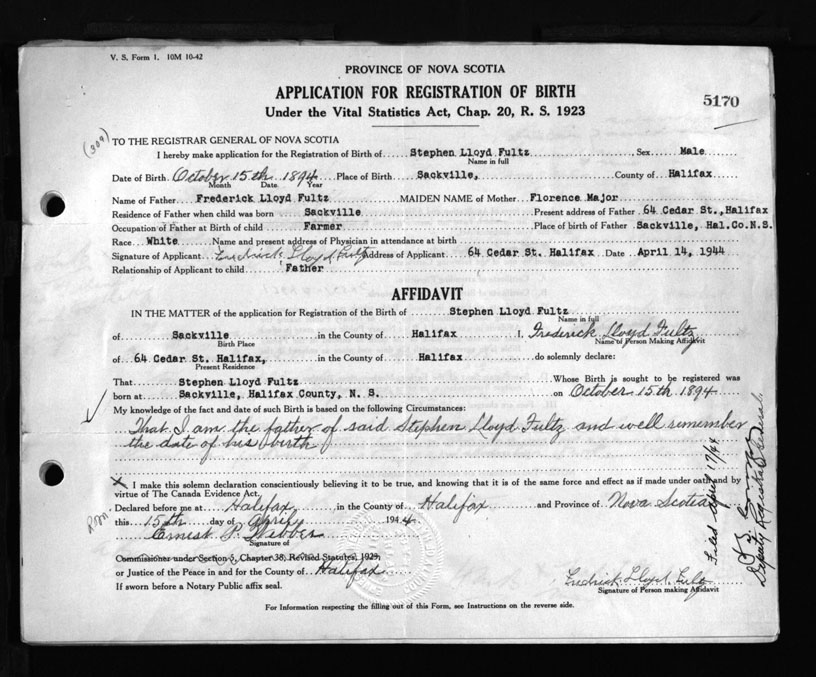 V. S. Form 1. 10M 10-42
PROVINCE OF NOVA SCOTIA
APPLICATION FOR REGISTRATION OF BIRTH
5170
Under the Vital Statistics Act, Chap. 20, R. S. 1923
(309)
TO THE REGISTRAR GENERAL OF NOVA SCOTIA
I hereby make application for the Registration of Birth of Stephen Lloyd Fultz Sex Male
Name in full
Date of Birth October 15th 1894 Place of Birth Sackville, County of Halifax
Month Date Year
Name of Father Frederick Lloyd Fultz MAIDEN NAME of Mother Florence Major
Residence of Father when child was born Sackville Present address of Father 64 Cedar St., Halifax
Occupation of Father at Birth of child Farmer Place of birth of Father Sackville, Hal.Co.N.S.
Race White Name and present address of Physician in attendance at birth
Signature of Applicant Fredrick Lloyd Fultz Address of Applicant 64 Cedar St. Halifax Date April 14, 1944
Relationship of Applicant to child Father
AFFIDAVIT
IN THE MATTER of the application for Registration of the Birth of Stephen Lloyd Fultz
Name in full
of Sackville in the County of Halifax I, Frederick Lloyd Fultz
Birth Place Name of Person Making Affidavit
of 64 Cedar St. Halifax, in the County of Halifax do solemnly declare:
Present Residence
That Stephen Lloyd Fultz Whose Birth is sought to be registered was
born at Sackville, Halifax County, N. S. on October 15th 1894
My knowledge of the fact and date of such Birth is based on the following Circumstances:
That I am the father of said Stephen Lloyd Fultz and well remember
the date of his birth
X I make this solemn declaration conscientiously believing it to be true, and knowing that it is of the same force and effect as if made under oath and by
virtue of The Canada Evidence Act.
Declared before me at Halifax in the County of Halifax and Province of Nova Scotia
this 15th day of April 1944
Ernest P. Webber
Signature of
Commissioner under Section 5, Chapter 38, Revised Statutes, 1923,
or Justice of the Peace in and for the County of Halifax
If sworn before a Notary Public affix seal.
Fredrick Lloyd Fultz
Signature of Person making Affidavit
For Information respecting the filling out of this Form, see Instructions on the reverse side.
Filed April 17/44
Deputy Registrar General